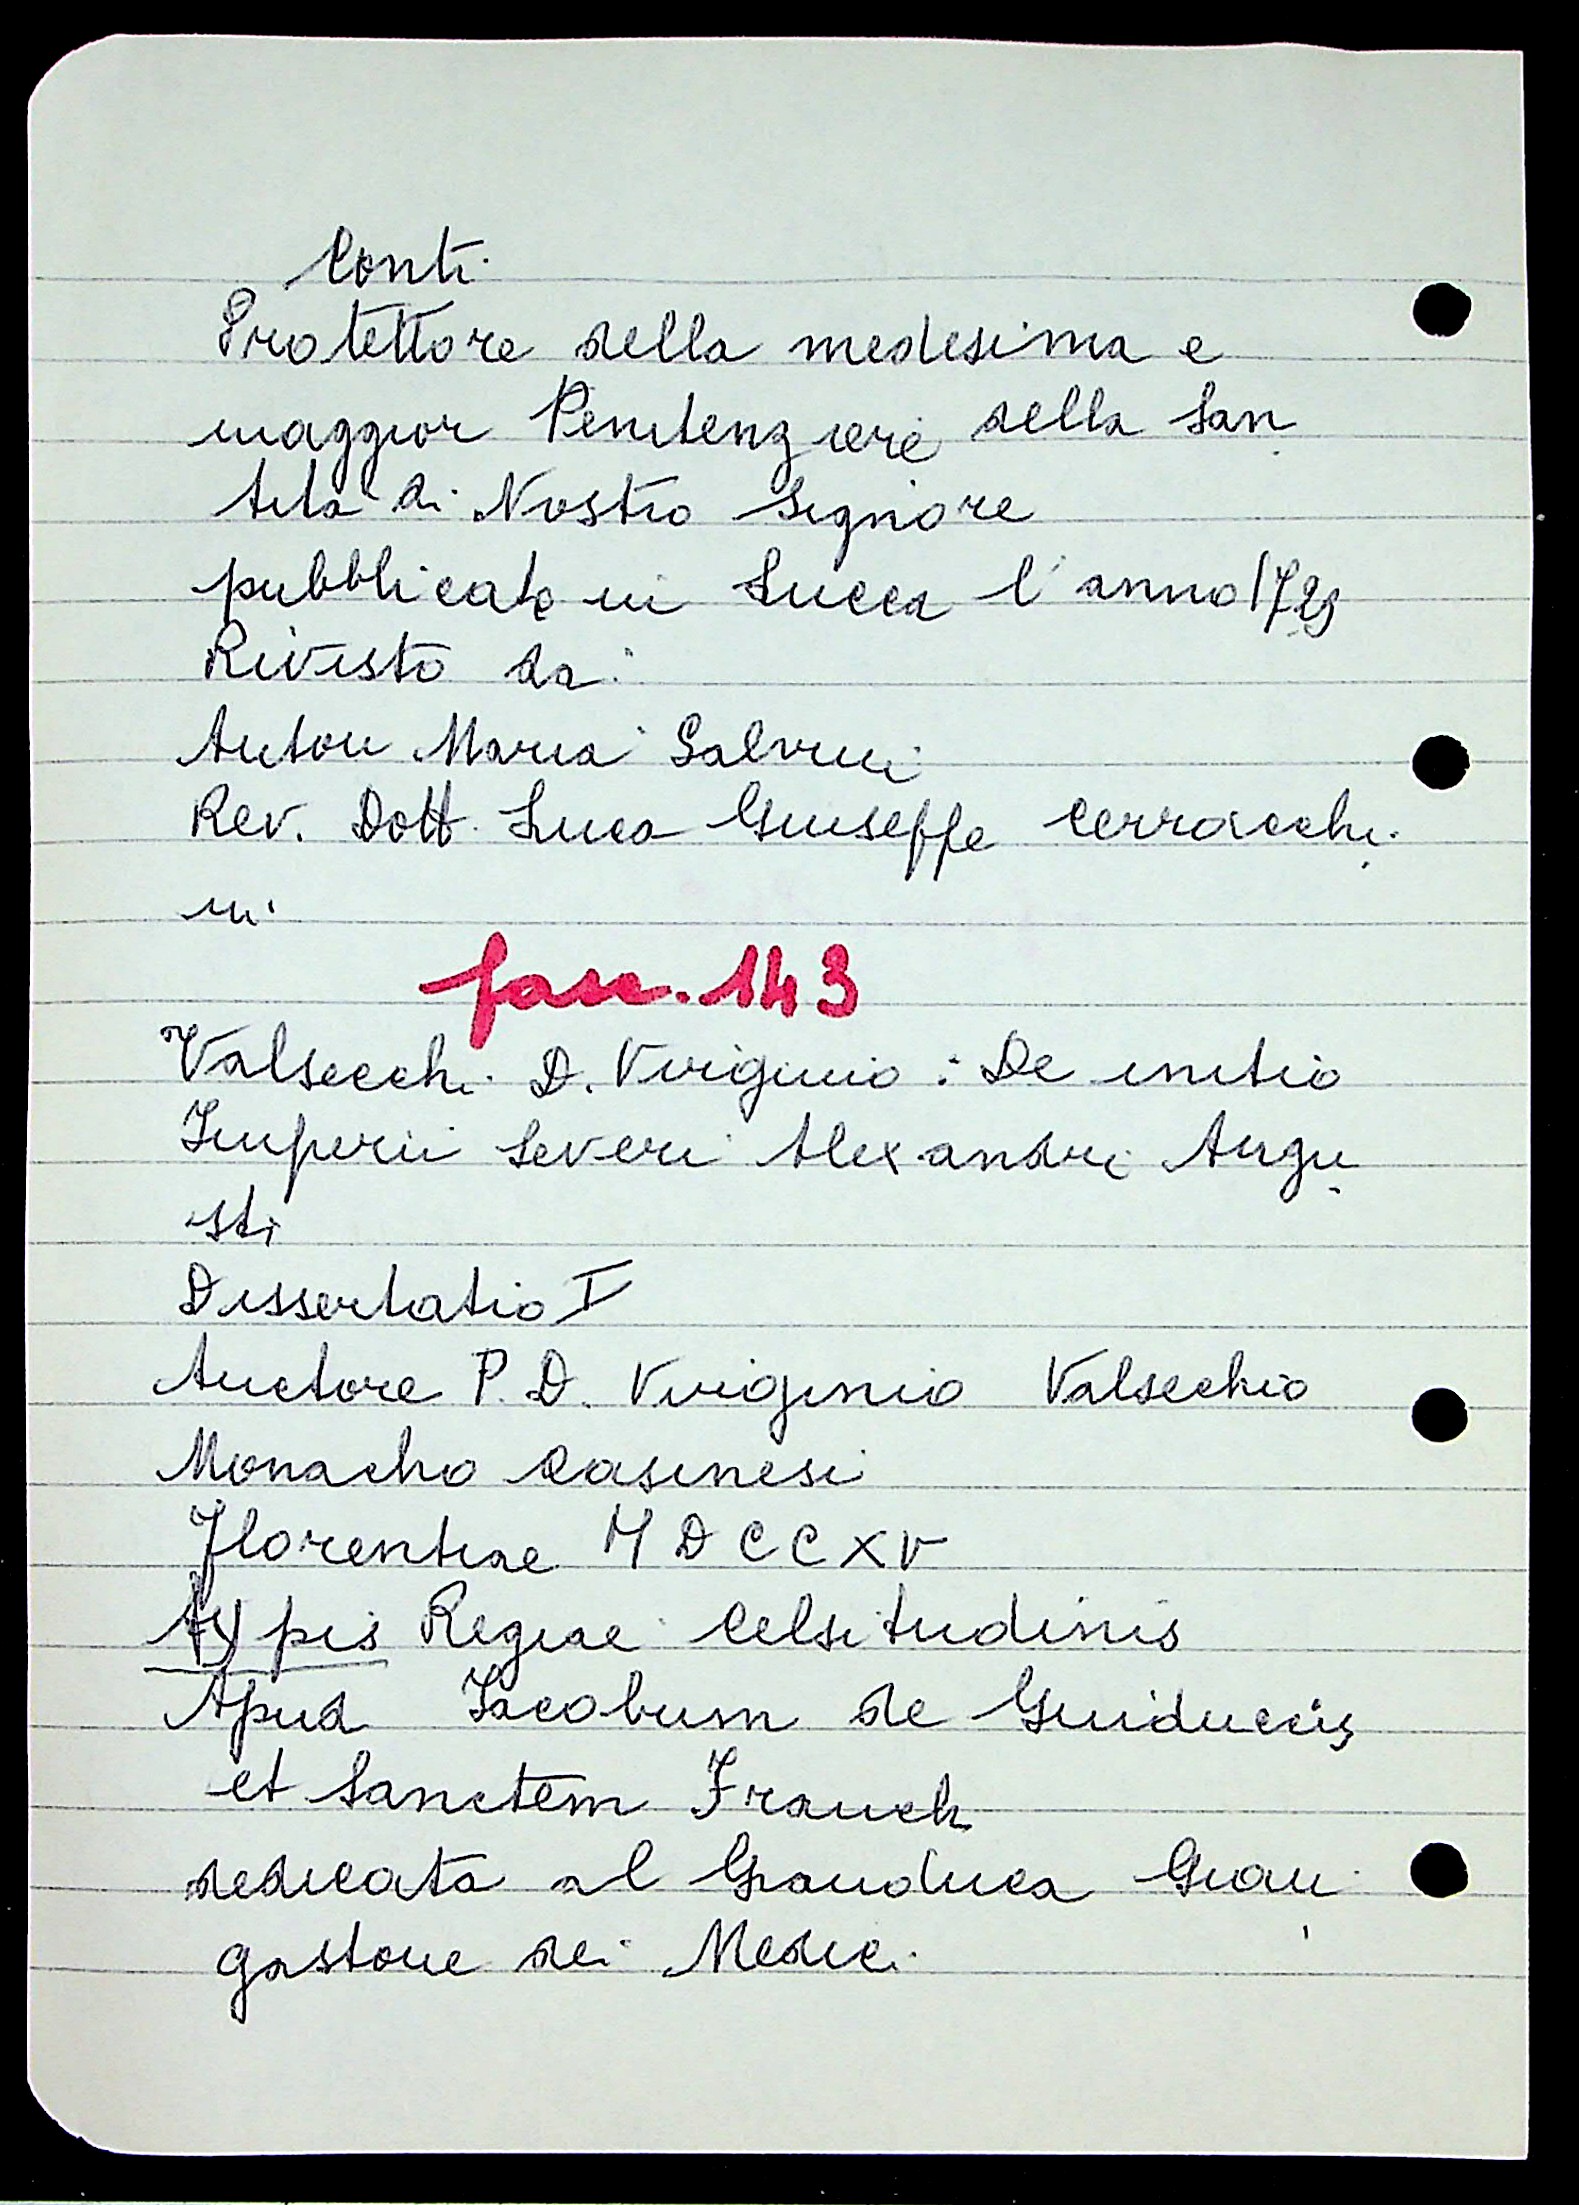 Conti
Protettore della medesima e
maggior Penitenziere della San
tità di Nostro Signore
pubblicato in Lucca l'anno 1729
Rivisto da:
Anton Maria Salvini
Rev. Dott. Luca Giuseppe Cerracchi
ni
fasc. 143
Valsecchi D. Virginio: De initio
Imperii Severi Alexandri Augu
sti
Dissertatio I
Auctore P. D. Virginio Valsechio
Monacho Casinesi
Florentiae MDCCXV
Typis Regiae Celsitudinis
Apud Iacobum de Guiduccis
et Sanctem Franch
dedicata al Granduca Gian
gastone dei Medici